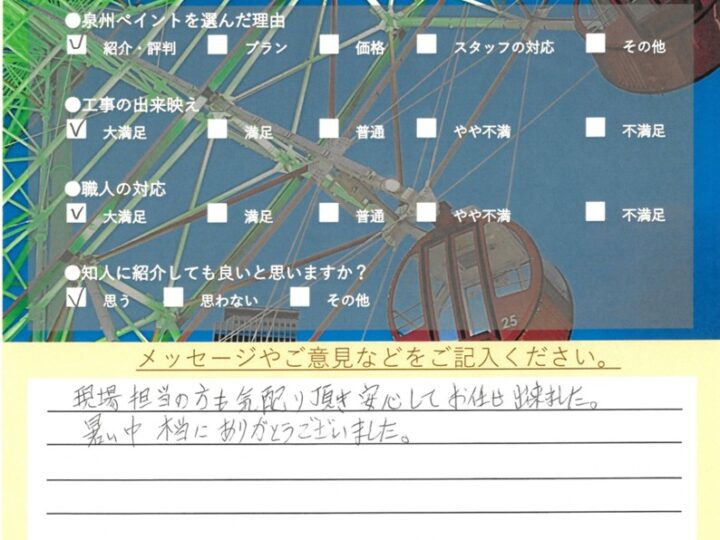 ●泉州ペイントを選んだ理由
紹介・評判 プラン 価格 スタッフの対応 その他
●工事の出来映え
大満足 満足 普通 やや不満 不満足
●職人の対応
大満足 満足 普通 やや不満 不満足
●知人に紹介しても良いと思いますか?
思う 思わない その他
25
メッセージやご意見などをご記入ください。
現場担当の方も気配り頂き安心してお任せ出来ました。
暑い中 本当にありがとうございました。